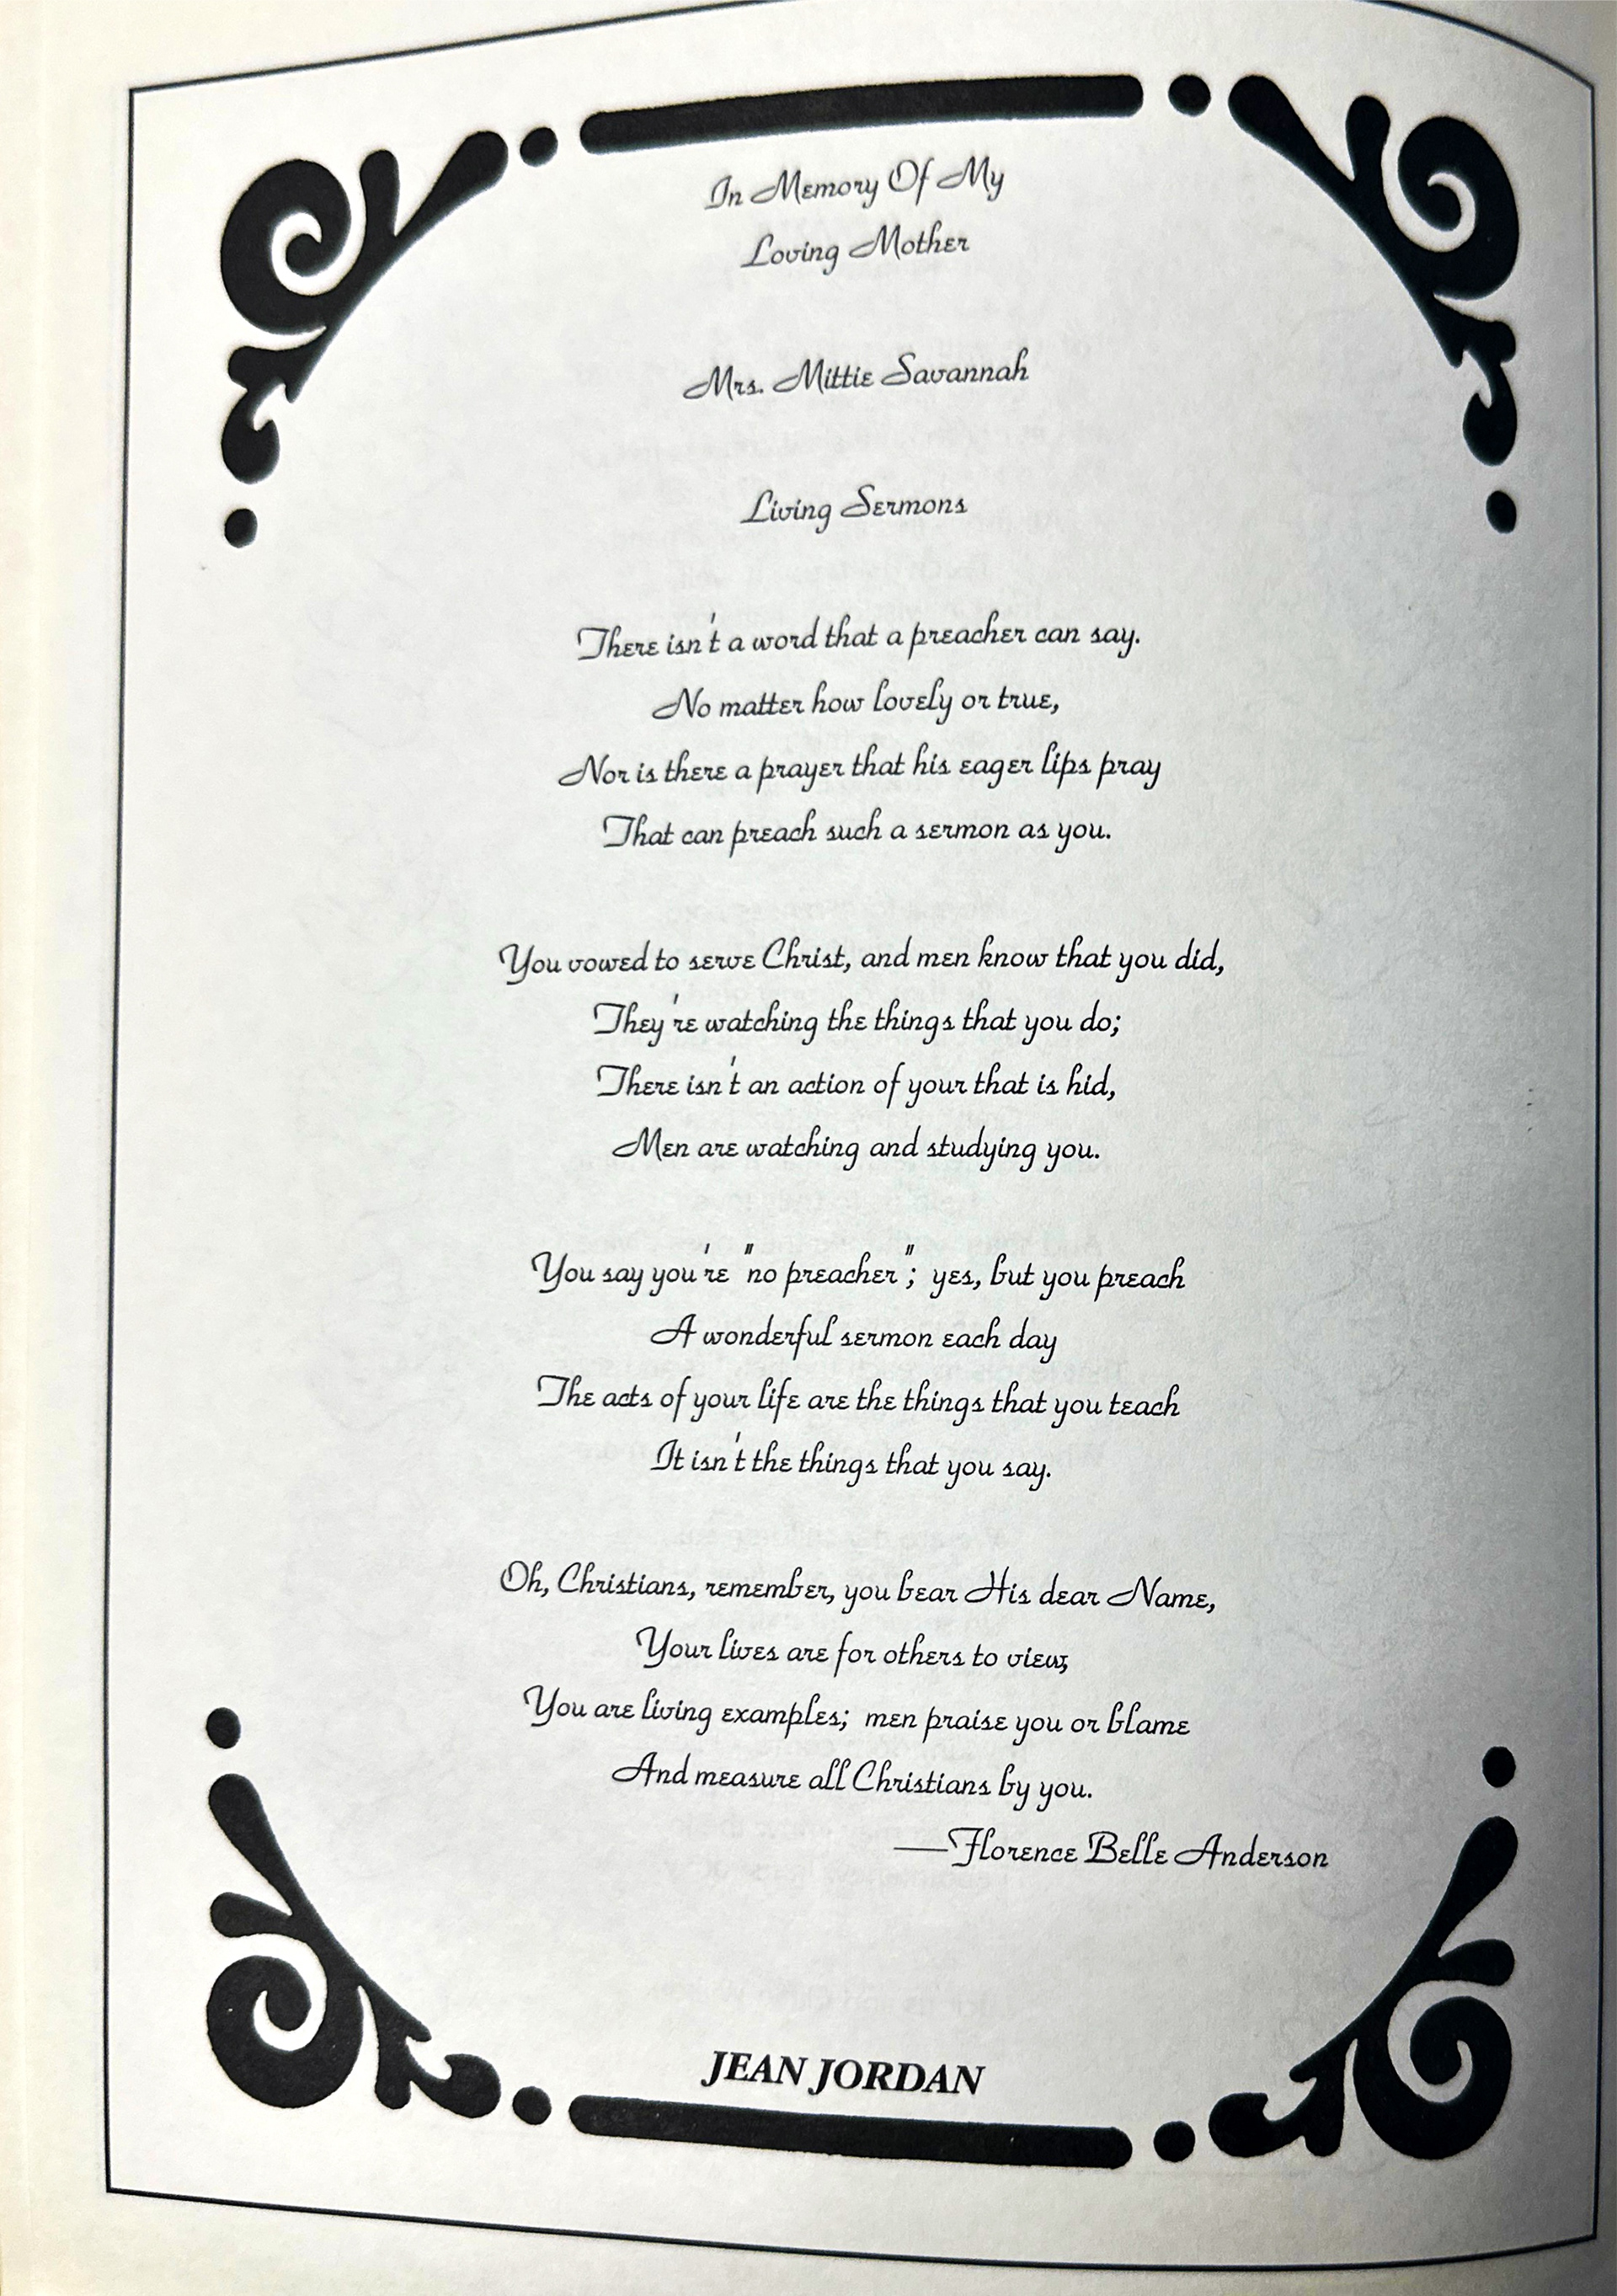 In Memory Of My
Loving Mother
Mrs. Mittie Savannah
Living Sermons
There isn't a word that a preacher can say.
No matter how lovely or true,
Nor is there a prayer that his eager lips pray
That can preach such a sermon as you.
You vowed to serve Christ, and men know that you did,
They're watching the things that you do;
There isn't an action of your that is hid,
Men are watching and studying you.
You say you're "no preacher"; yes, but you preach
A wonderful sermon each day
The acts of your life are the things that you teach
It isn't the things that you say.
Oh, Christians, remember, you bear His dear Name,
Your lives are for others to view;
You are living examples; men praise you or blame
And measure all Christians by you.
—Florence Belle Anderson
JEAN JORDAN